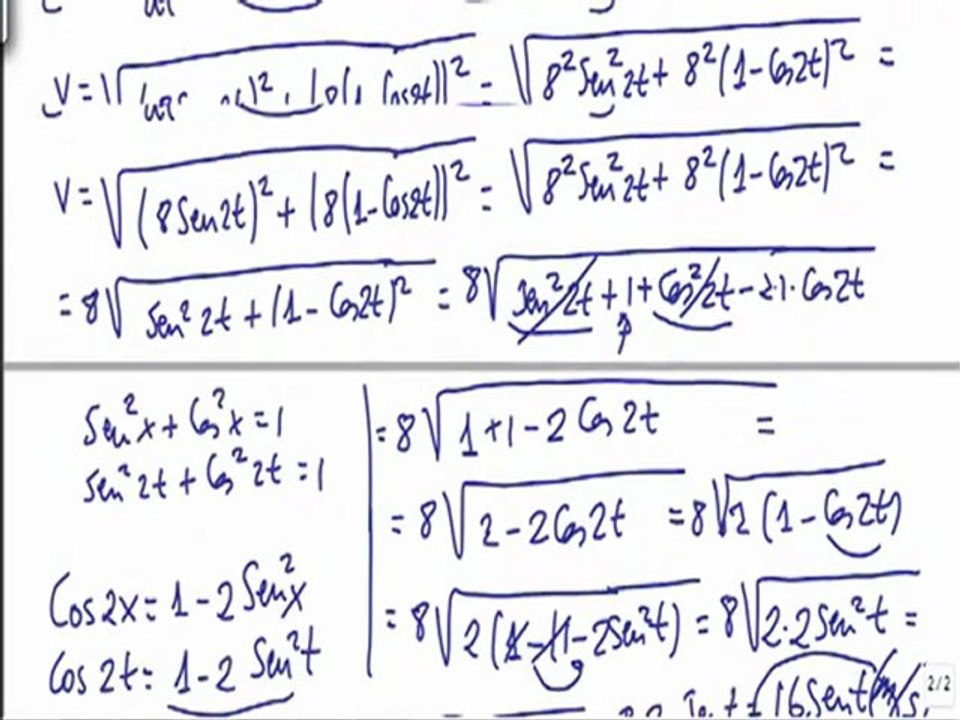 V = √ = √(8² Sen² 2t + 8² (1 - Cos 2t)²) =
V = √((8 Sen 2t)² + (8(1 - Cos 2t))²) = √(8² Sen² 2t + 8² (1 - Cos 2t)²) =
= 8√(Sen² 2t + (1 - Cos 2t)²) = 8√(Sen² 2t + 1 + Cos² 2t - 2·1·Cos 2t)
Sen² x + Cos² x = 1
Sen² 2t + Cos² 2t = 1
Cos 2x = 1 - 2 Sen² x
Cos 2t = 1 - 2 Sen² t
= 8√(1 + 1 - 2 Cos 2t) =
= 8√(2 - 2 Cos 2t) = 8√(2 (1 - Cos 2t))
= 8√(2 (1 - (1 - 2 Sen² t)) = 8√(2·2 Sen² t) =
16 Sen t m/s.
2/2